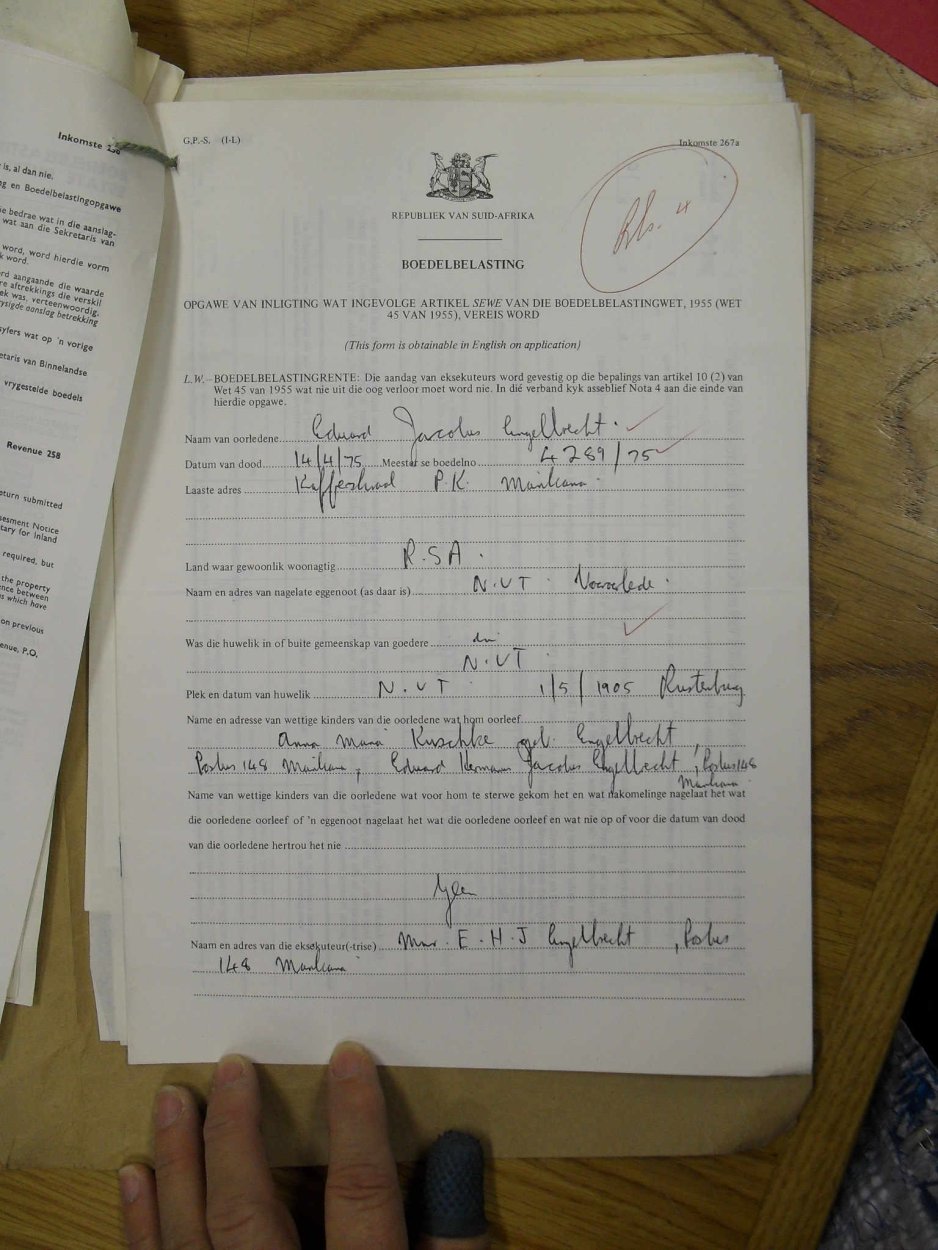 Inkomste 258
is, al dan nie.
ng en Boedelbelastingopgawe
ie bedrae wat in die aanslag-
wat aan die Sekretaris van
word, word hierdie vorm
k word.
rd aangaande die waarde
re aftrekkings die verskil
ek was, verteenwoordig,
ysigde aanslag betrekking
syfers wat op 'n vorige
etaris van Binnelandse
vrygestelde boedels
Revenue 258
eturn submitted
sesment Notice
tary for Inland
required, but
the property
nce between
s which have
on previous
enue, P.O.
G.P.-S. (I-L)
Inkomste 267a
REPUBLIEK VAN SUID-AFRIKA
BOEDELBELASTING
OPGAWE VAN INLIGTING WAT INGEVOLGE ARTIKEL SEWE VAN DIE BOEDELBELASTINGWET, 1955 (WET
45 VAN 1955), VEREIS WORD
(This form is obtainable in English on application)
L.W.—BOEDELBELASTINGRENTE: Die aandag van eksekuteurs word gevestig op die bepalings van artikel 10 (2) van
Wet 45 van 1955 wat nie uit die oog verloor moet word nie. In dié verband kyk asseblief Nota 4 aan die einde van
hierdie opgawe.
Naam van oorledene Eduard Jacobus Engelbrecht.
Datum van dood 14/4/75 Meester se boedelno 4289/75
Laaste adres Kafferskraal P.K. Marikana.
Land waar gewoonlik woonagtig R.S.A.
Naam en adres van nagelate eggenoot (as daar is) N.V.T. Vooroorlede.
Was die huwelik in of buite gemeenskap van goedere
N.V.T.
Plek en datum van huwelik N.V.T. 1/5/1905 Rustenburg
Name en adresse van wettige kinders van die oorledene wat hom oorleef
Anna Maria Kuschke geb. Engelbrecht,
Posbus 148 Marikana, Eduard Hermanus Jacobus Engelbrecht, Posbus 148
Marikana
Name van wettige kinders van die oorledene wat voor hom te sterwe gekom het en wat nakomelinge nagelaat het wat
die oorledene oorleef of 'n eggenoot nagelaat het wat die oorledene oorleef en wat nie op of voor die datum van dood
van die oorledene hertrou het nie
Geen
Naam en adres van die eksekuteur(-trise) Mnr. E.H.J Engelbrecht, Posbus
148 Marikana